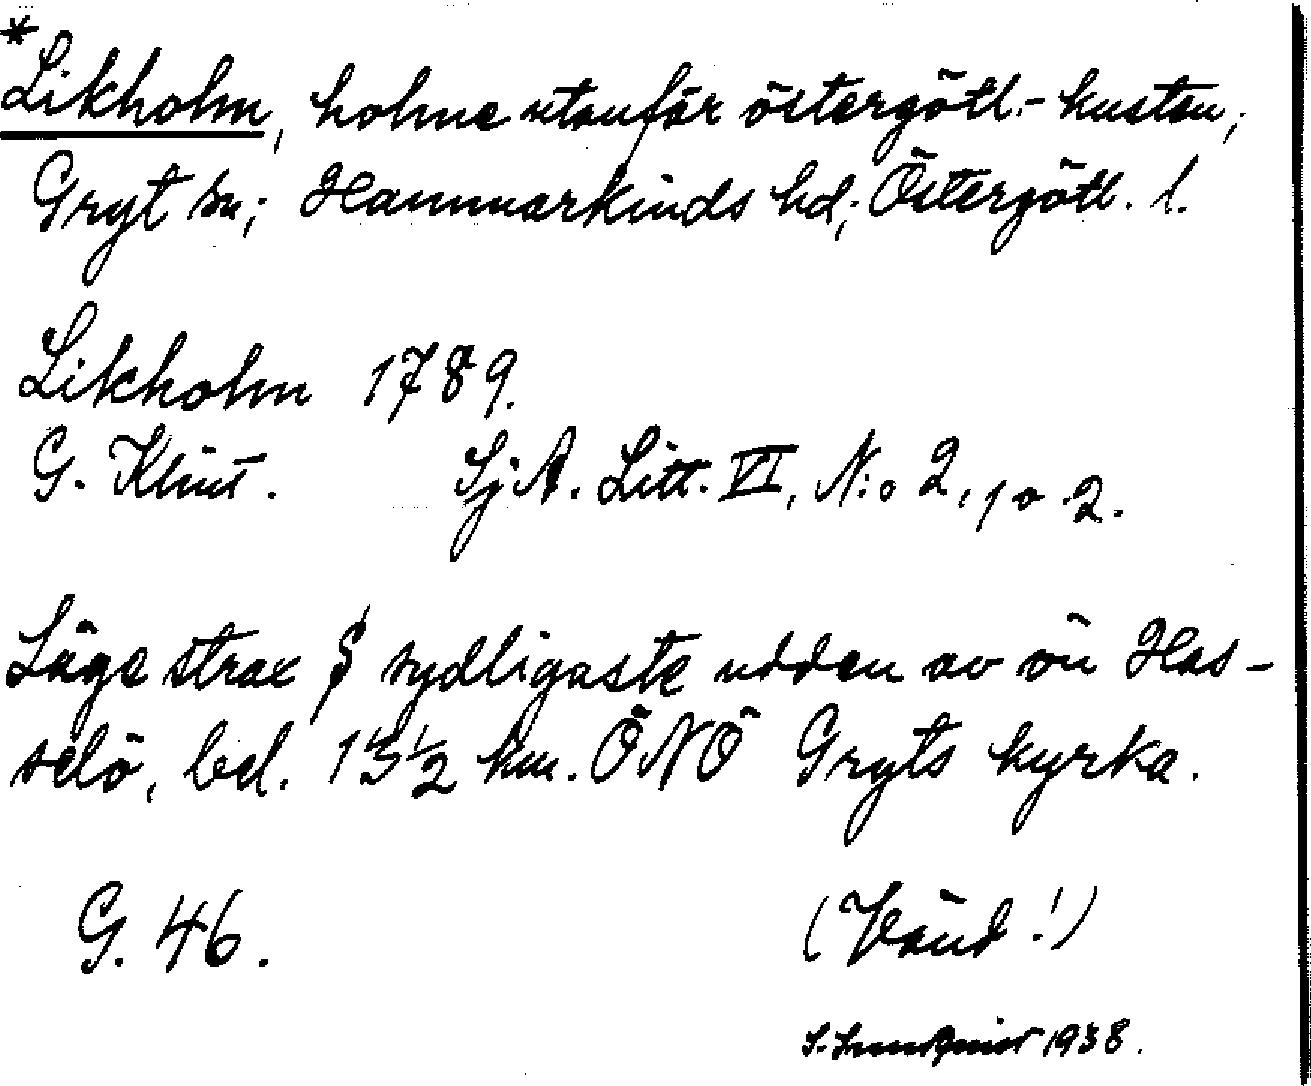 *Likholm, holme utanför östergötl.-kusten;
Gryt sn; Hammarkinds hd; Östergötl. l.
Likholm 1789.
G. Klint. SjA. Litt. VI, N:o 2, 1 o 2.
Läge strax S sydligaste udden av ön Has-
selö, bel. 13½ km. ÖNÖ Gryts kyrka.
G. 46. (Vänd!)
S. 1938.